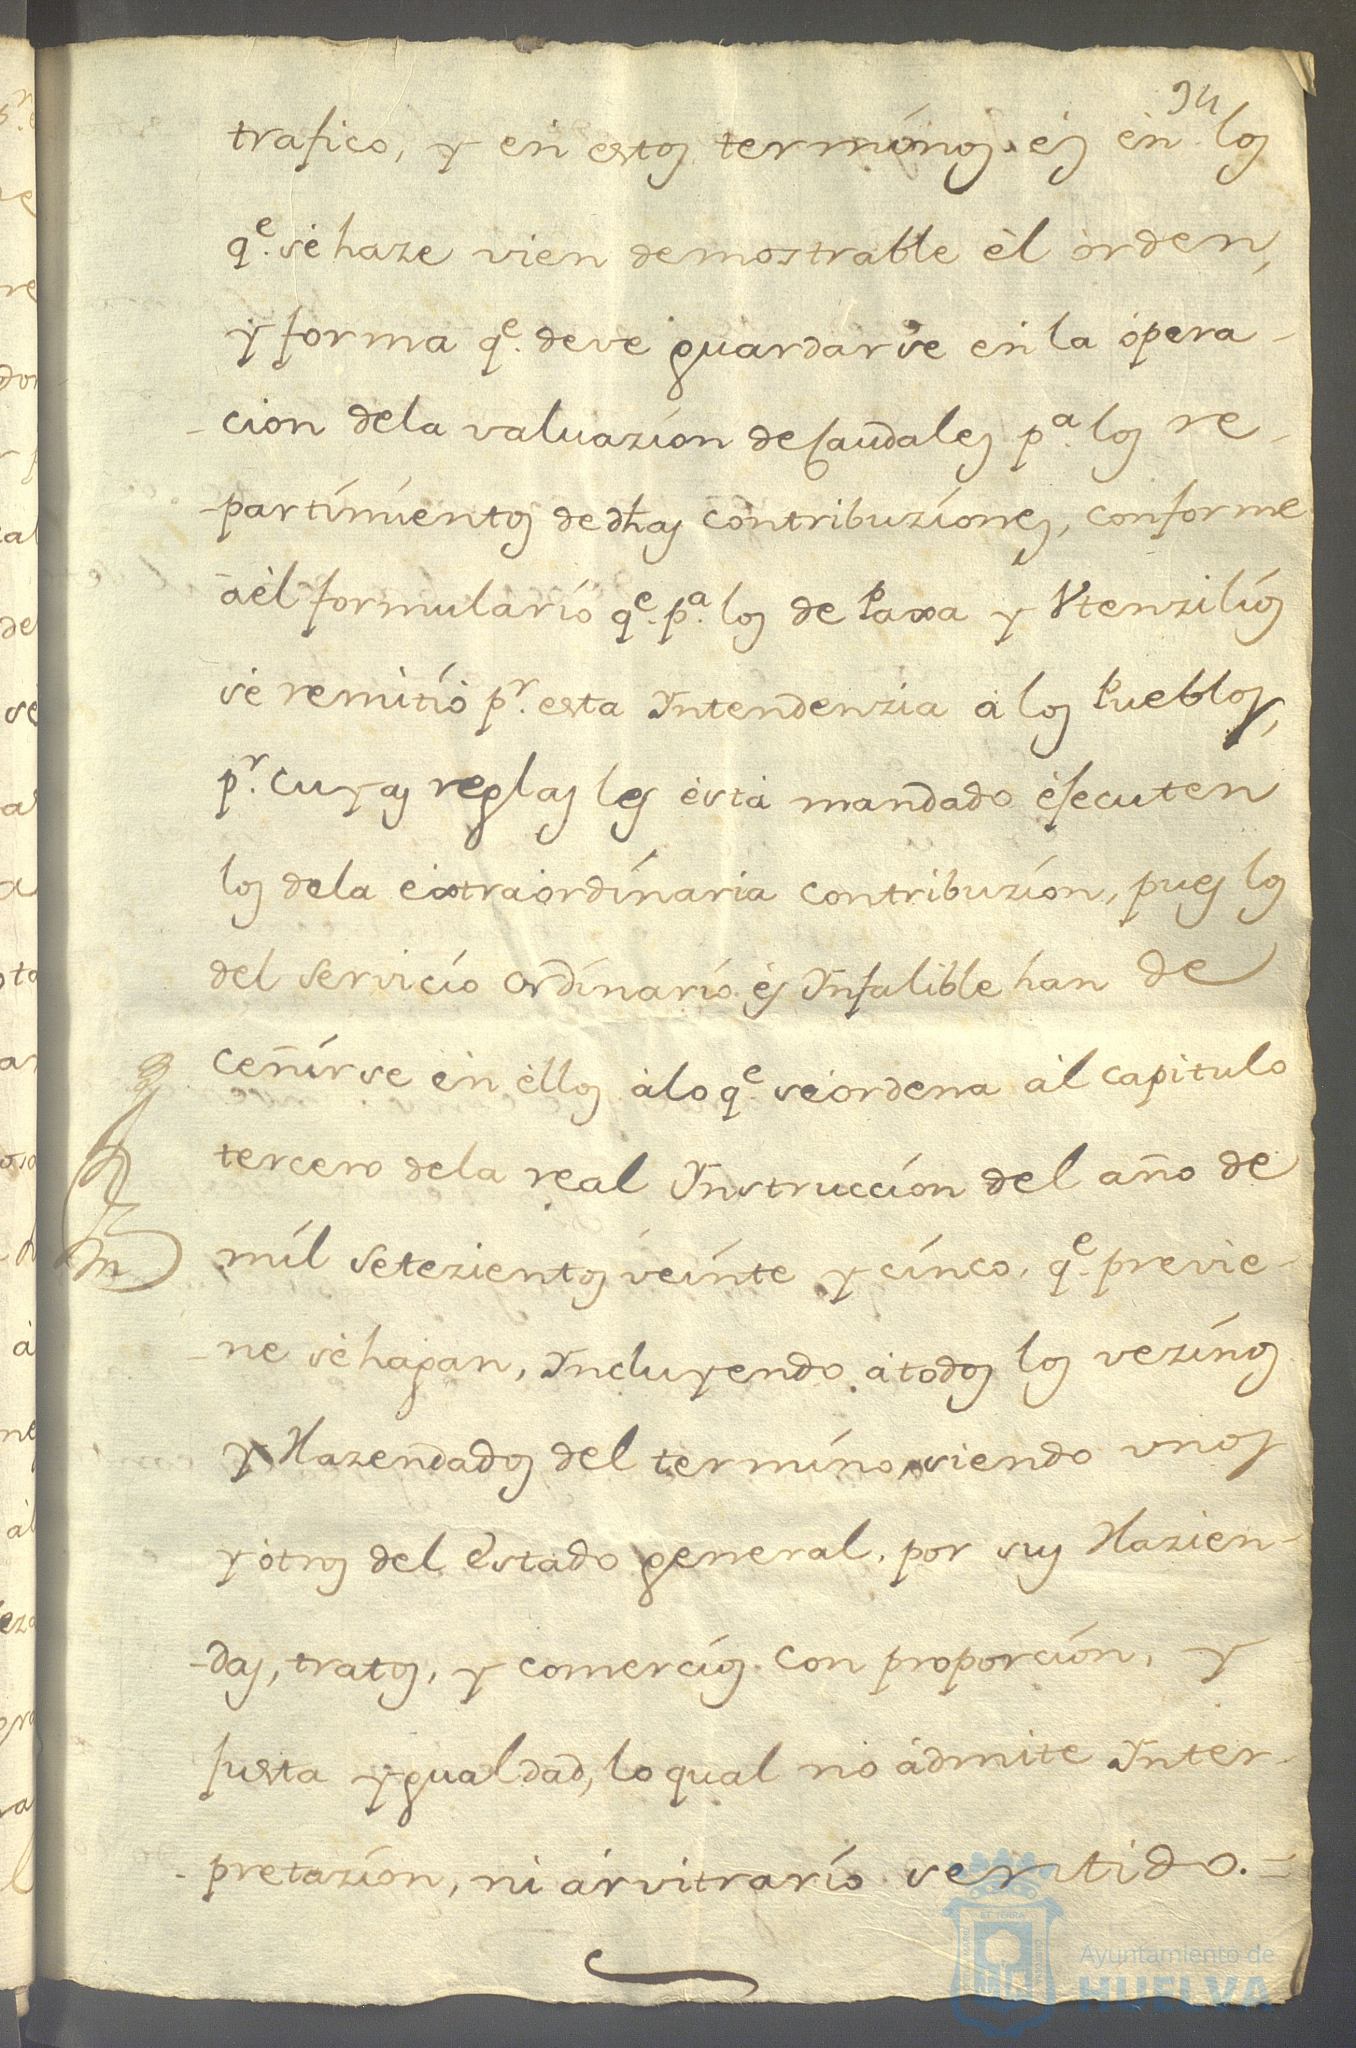 94
trafico, y en estos terminos es en los
q.e se haze vien demostrable èl orden,
y forma q.e deve guardarse en la opera-
-cion dela valuazion de Caudales p.a los re-
-partimientos de dhas contribuziones, conforme
aèl formulario q.e p.a los de Paxa y Vtenzilios
se remitiò p.r esta Yntendenzia à los Pueblos,
p.r cuyas reglas les està mandado èjecuten
los dela extraordinaria contribuzion, pues los
del Servicio Ordinario ès Ynfalible han de
ceñirse èn èllos àlo q.e seordena àl capitulo
tercero dela real Ynstruccion del año de
mil Setezientos veinte y cinco, q.e previe-
-ne sèhagan, Yncluyendo àtodos los vezinos
y Hazendados del termino, siendo vnos
y òtros del Estado general, por sus Hazien-
-das, tratos, y comercios con proporcion, y
justa ygualdad, lo qual no àdmite Ynter-
-pretazion, ni àrvitrario sentido.=
Ayuntamiento de
HUELVA